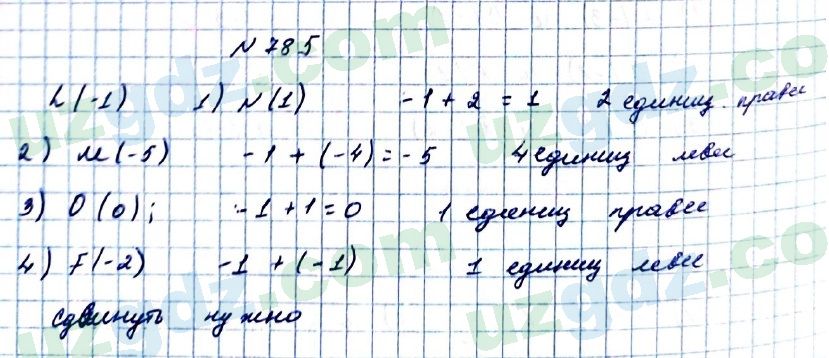 N 785
L(-1) 1) N(1) -1 + 2 = 1 2 единиц правее
2) M(-5) -1 + (-4) = -5 4 единиц левее
3) O(0); -1 + 1 = 0 1 единиц правее
4) F(-2) -1 + (-1) 1 единиц левее
сдвинуть нужно
uzgdz.com